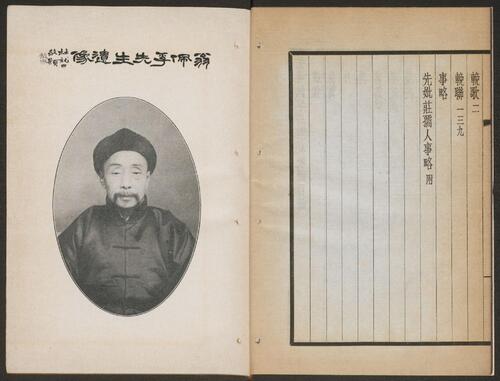 輓歌 二
輓聯 一三九
事略
先妣莊孺人事略 附
翁佩孚先生遺像